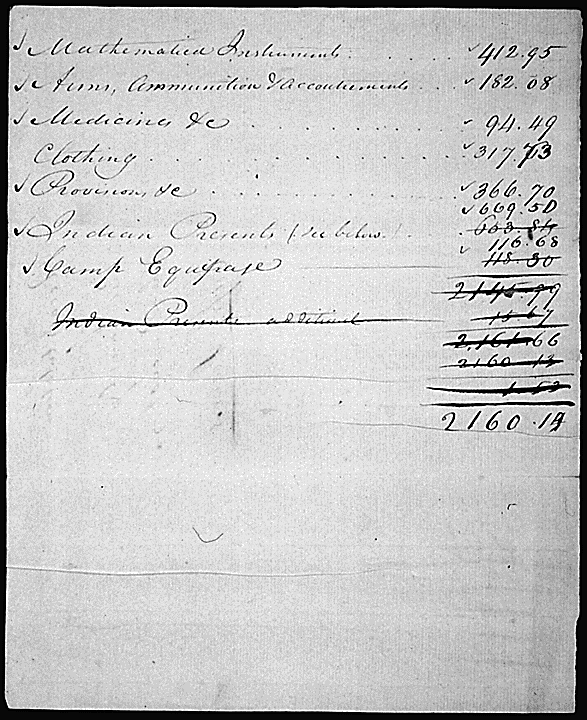 √ Mathematical Instruments . . . . . √ 412.95
√ Arms, Ammunition & Accoutrements . . . √ 182.08
√ Medicines &c . . . . . . . √ 94.49
Clothing . . . . . . . . √ 317.73
√ Provisions, &c . . . . . . . √ 366.70
√ 669.50
√ Indian Presents (see below.) . . 663.84
116.68
√ Camp Equipage √ 118.30
2145.99
Indian Presents additional 15.67
2,161.66
2160.13
1.53
2160.14